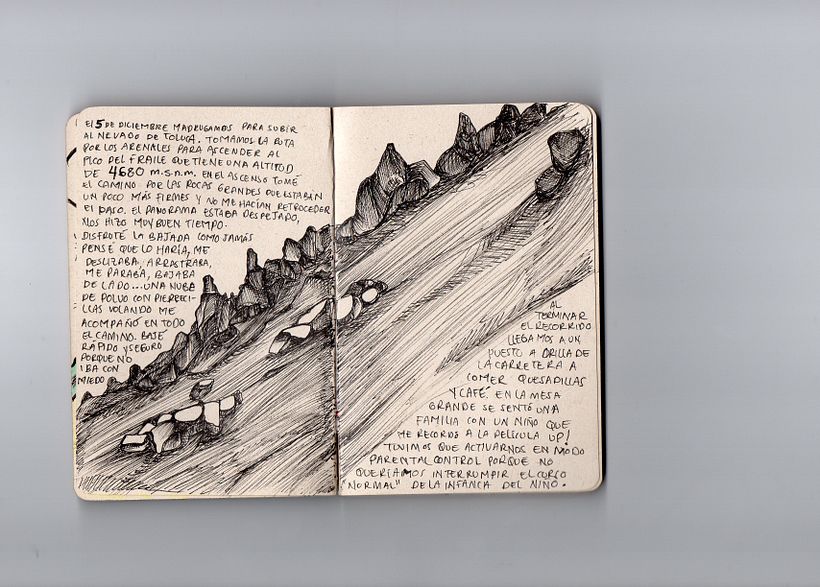 El 5 DE DICIEMBRE MADRUGAMOS PARA SUBIR
AL NEVADO DE TOLUCA. TOMAMOS LA RUTA
POR LOS ARENALES PARA ASCENDER AL
PICO DEL FRAILE QUE TIENE UNA ALTITUD
DE 4680 m.s.n.m. EN EL ASCENSO TOMÉ
EL CAMINO POR LAS ROCAS GRANDES QUE ESTABAN
UN POCO MÁS FIRMES Y NO ME HACÍAN RETROCEDER
EL PASO. EL PANORAMA ESTABA DESPEJADO,
NOS HIZO MUY BUEN TIEMPO.
DISFRUTÉ LA BAJADA COMO JAMÁS
PENSÉ QUE LO HARÍA, ME
DESLIZABA, ARRASTRABA,
ME PARABA, BAJABA
DE LADO... UNA NUBE
DE POLVO CON PIEDRECI-
LLAS VOLANDO ME
ACOMPAÑÓ EN TODO
EL CAMINO. BAJÉ
RÁPIDO Y SEGURO
PORQUE NO
IBA CON
MIEDO
AL
TERMINAR
EL RECORRIDO
LLEGAMOS A UN
PUESTO A ORILLA DE
LA CARRETERA A
COMER QUESADILLAS
Y CAFÉ. EN LA MESA
GRANDE SE SENTÓ UNA
FAMILIA CON UN NIÑO QUE
ME RECORDÓ A LA PELÍCULA UP!
TUVIMOS QUE ACTIVARNOS EN MODO
PARENTAL CONTROL PORQUE NO
QUERÍAMOS INTERRUMPIR EL CURSO
"NORMAL" DE LA INFANCIA DEL NIÑO.